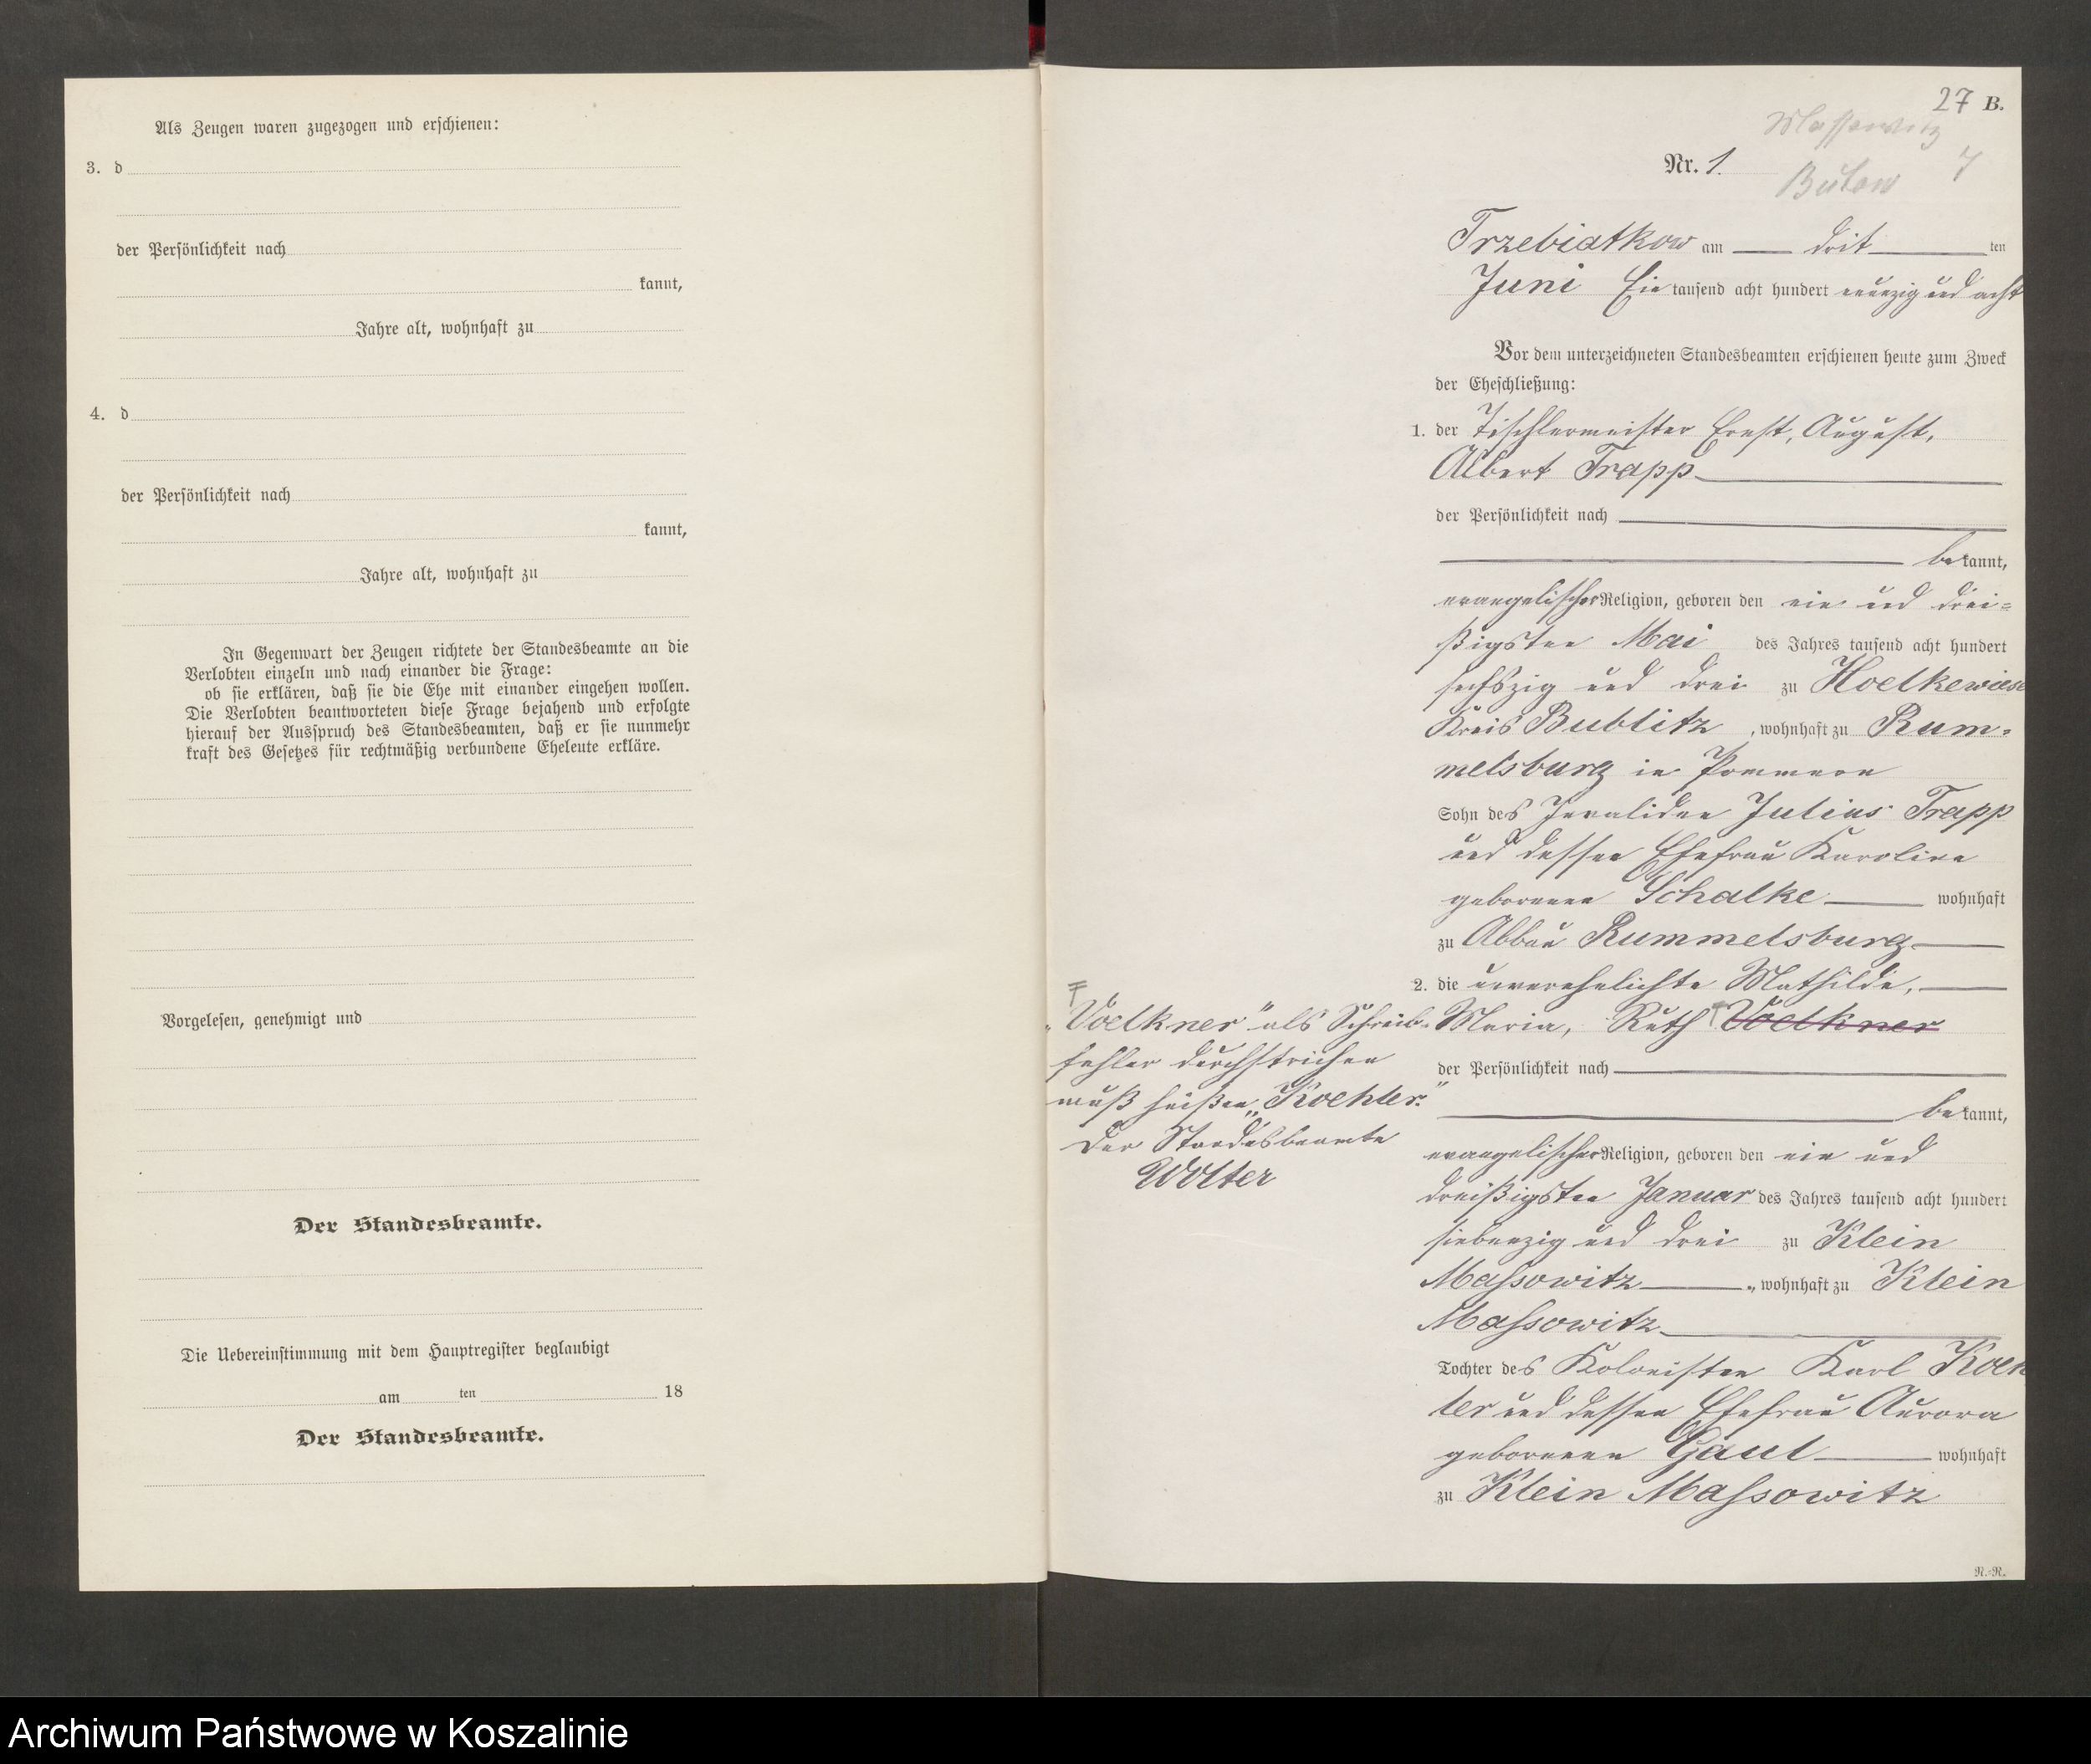 Als Zeugen waren zugezogen und erschienen:
3. d
der Persönlichkeit nach
kannt,
Jahre alt, wohnhaft zu
4. d
der Persönlichkeit nach
kannt,
Jahre alt, wohnhaft zu
In Gegenwart der Zeugen richtete der Standesbeamte an die
Verlobten einzeln und nach einander die Frage:
ob sie erklären, daß sie die Ehe mit einander eingehen wollen.
Die Verlobten beantworteten diese Frage bejahend und erfolgte
hierauf der Ausspruch des Standesbeamten, daß er sie nunmehr
kraft des Gesetzes für rechtmäßig verbundene Eheleute erkläre.
Vorgelesen, genehmigt und
Der Standesbeamte.
Die Uebereinstimmung mit dem Hauptregister beglaubigt
am ten 18
Der Standesbeamte.
27 B.
Massowitz
Nr. 1.
Bütow 7
Trzebiatkow am drit ten
Juni Ein tausend acht hundert neunzig und acht
Vor dem unterzeichneten Standesbeamten erschienen heute zum Zweck
der Eheschließung:
1. der Tischlermeister Ernst, August,
Albert Trapp
der Persönlichkeit nach
be kannt,
evangelischer Religion, geboren den ein und drei=
ßigsten Mai des Jahres tausend acht hundert
sechszig und drei zu Hoelkewiese
Kreis Bublitz, wohnhaft zu Rum=
melsburg in Pommern
Sohn des Invaliden Julius Trapp
und dessen Ehefrau Karoline
geborenen Schalke wohnhaft
zu Abbau Rummelsburg
2. die unverehelichte Mathilde,
Maria, Ruth Voelkner
der Persönlichkeit nach
be kannt,
evangelischer Religion, geboren den ein und
dreißigsten Januar des Jahres tausend acht hundert
siebenzig und drei zu Klein
Massowitz, wohnhaft zu Klein
Massowitz
Tochter des Kolonisten Karl Koeh
ler und dessen Ehefrau Aurora
geborenen Gaul wohnhaft
zu Klein Massowitz
R.-R.
„Voelkner" als Schreib=
fehler durchstrichen
muß heißen „Koehler."
Der Standesbeamte
Wolter
Archiwum Państwowe w Koszalinie